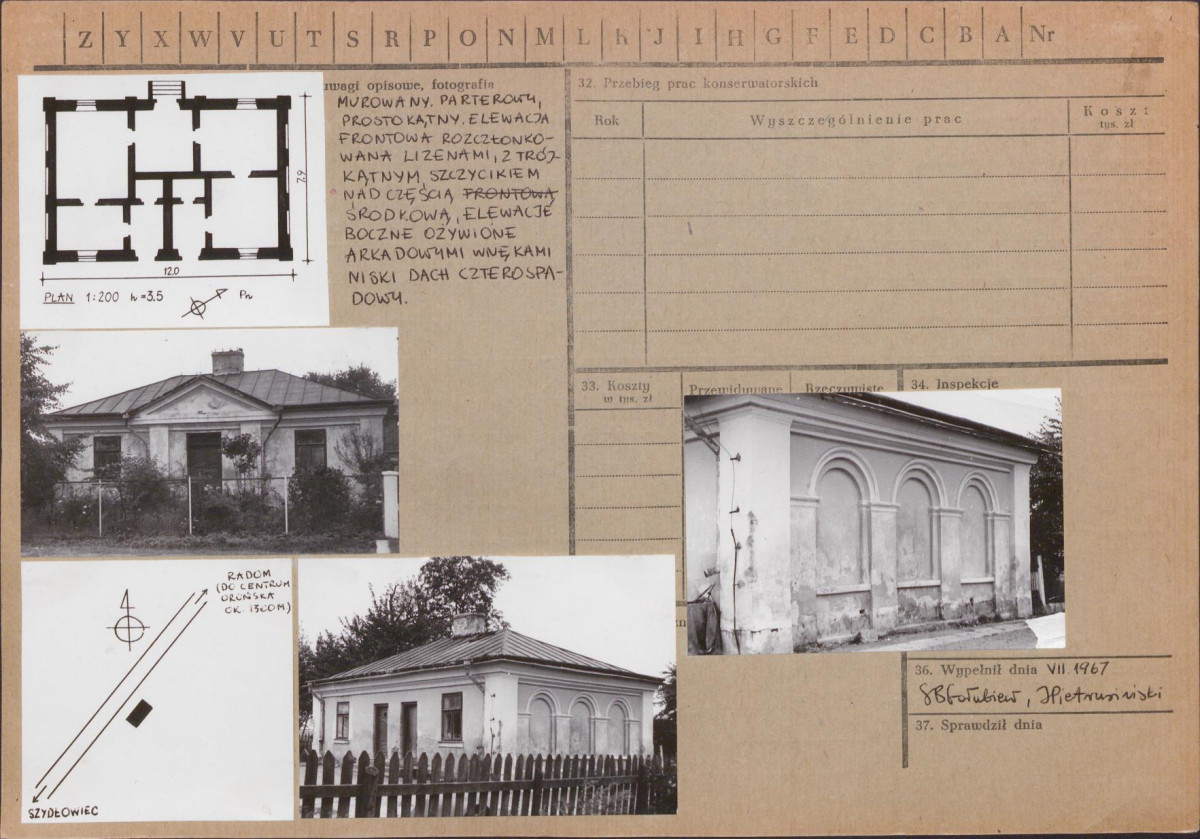 Z Y X W V U T S R P O N M L K J I H G F E D C B A Nr
uwagi opisowe, fotografia
MUROWANY. PARTEROWY,
PROSTOKĄTNY. ELEWACJA
FRONTOWA ROZCZŁONKO-
WANA LIZENAMI, Z TRÓJ-
KĄTNYM SZCZYCIKIEM
NAD CZĘŚCIĄ FRONTOWĄ
ŚRODKOWĄ, ELEWACJE
BOCZNE OŻYWIONE
ARKADOWYMI WNĘKAMI
NISKI DACH CZTEROSPA-
DOWY.
7,9
12.0
PLAN 1:200 h=3.5 Pn
RADOM
(DO CENTRUM
OROŃSKA
OK. 1300M)
SZYDŁOWIEC
32. Przebieg prac konserwatorskich
Rok Wyszczególnienie prac Koszt
tys. zł
33. Koszty Przewidywane Rzeczywiste 34. Inspekcje
w tys. zł
36. Wypełnił dnia VII 1967
37. Sprawdził dnia